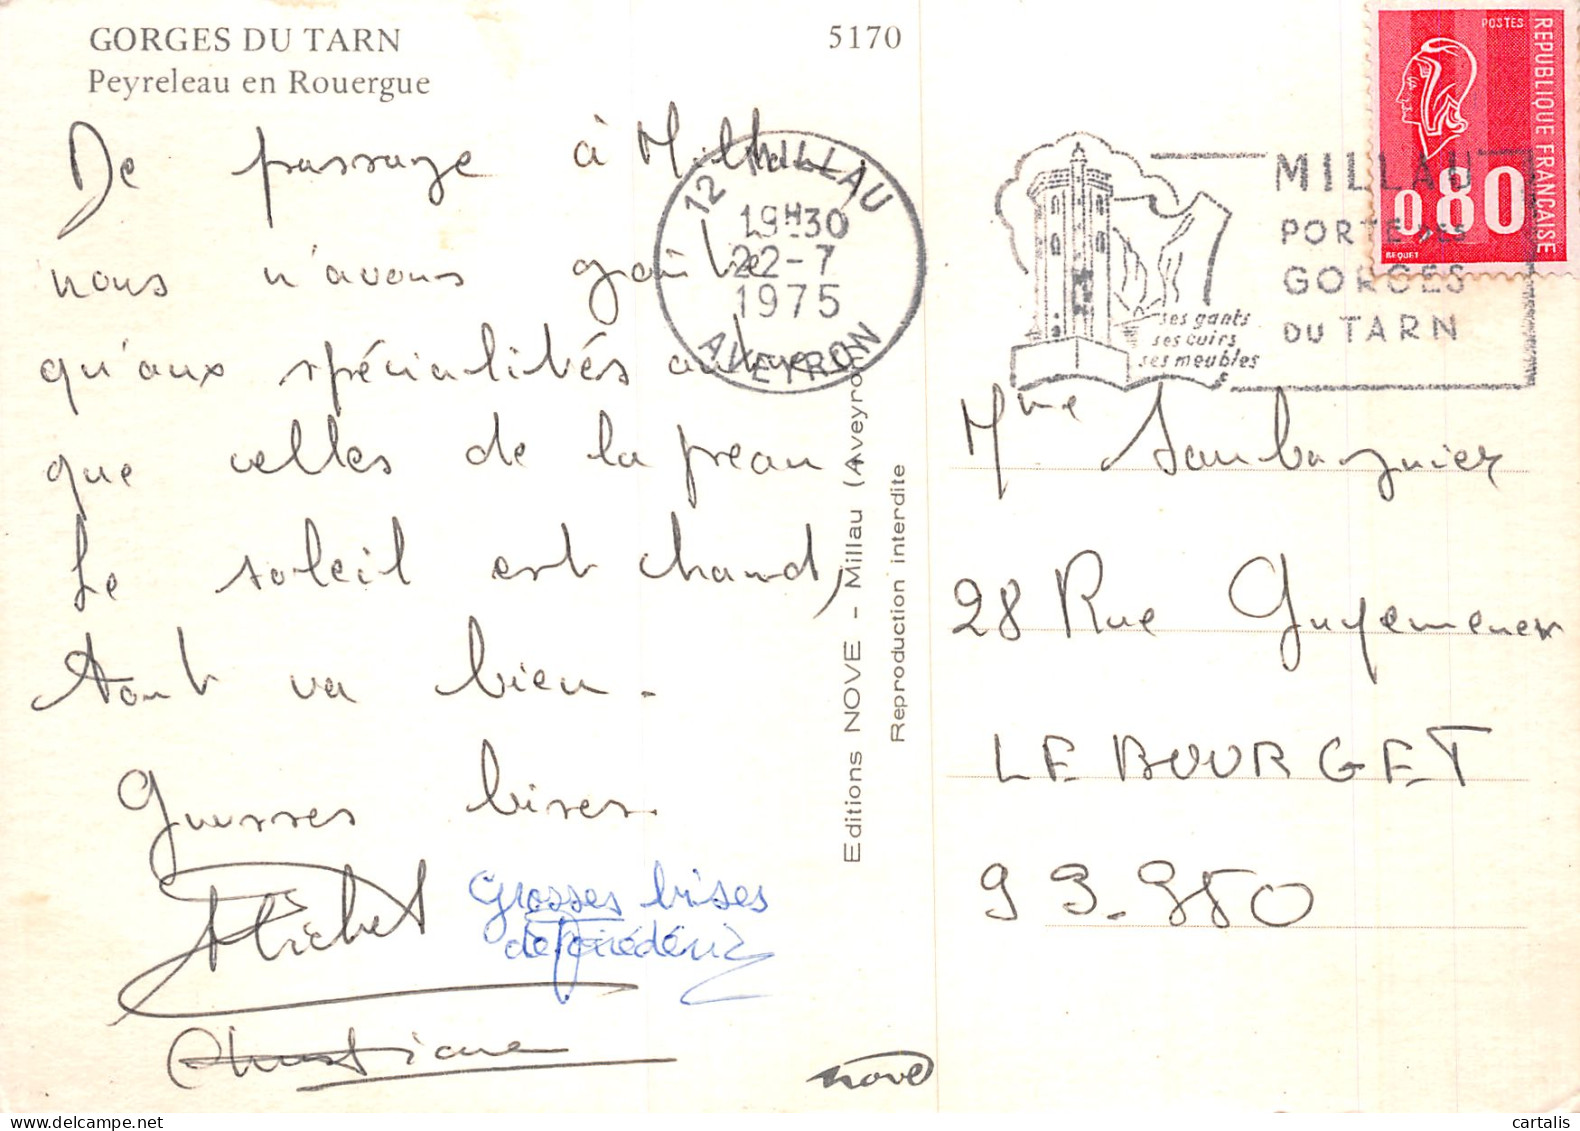 GORGES DU TARN
Peyreleau en Rouergue
5170
De passage à Millau
nous n'avons goûté
qu'aux spécialités autres
que celles de la peau
Le soleil est chaud,
tout va bien.
Grosses bises.
Michel
Grosses bises
de Frédéric
Christiane
Editions NOVE - Millau (Aveyron)
Reproduction interdite
nove
12 MILLAU
19H30
22-7
1975
AVEYRON
MILLAU
PORTE DES
GORGES
DU TARN
ses gants
ses cuirs
ses meubles
POSTES
REPUBLIQUE FRANÇAISE
0,80
BEQUET
Mme
28 Rue Guynemer
LE BOURGET
93.350
cartalis